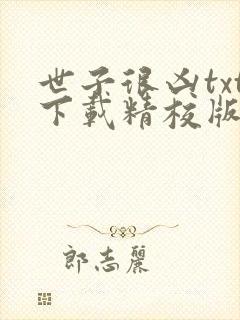 世子很凶txt
下载精校版
郎志丽